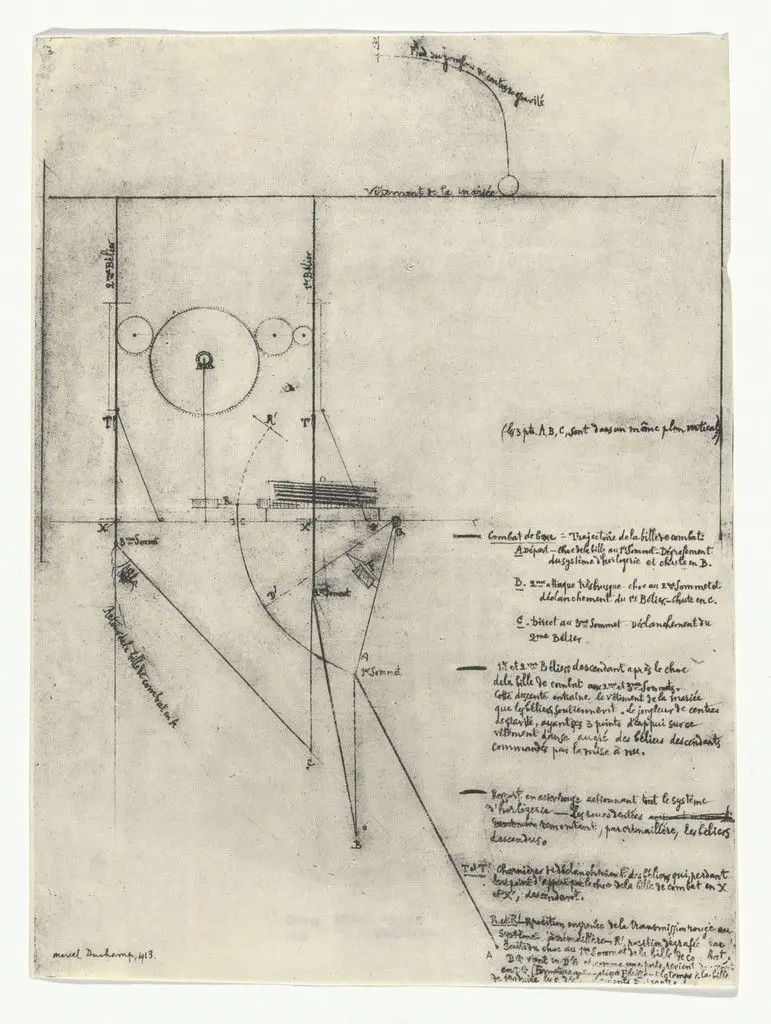 Pied du jongleur de centres de gravité
Vêtement de la mariée
2me Bélier
1er Bélier
R'
T'
T
(les 3 pts. A, B, C, sont dans un même plan vertical)
R
X
X'
3eme Sommet
2me Sommet
B'
A
1er Sommet
Retour de la bille de combat en A
C
B
A
Combat de boxe = Trajectoire de la bille de combat:
A Départ - choc de la bille au 1er Sommet - Dégrafement
du système d'horlogerie et chute en B.
B. 2me attaque très brusque - choc au 2me Sommet et
déclanchement du 1er Bélier - Chute en C.
C. Direct au 3me Sommet - Déclanchement du
2me Bélier.
1er et 2me Béliers descendant après le choc
de la bille de combat aux 2me et 3me Sommets.
Cette descente entraine le vêtement de la mariée
que les béliers soutiennent. Le jongleur de centres
de gravité, ayant ses 3 points d'appui sur ce
vêtement danse au gré des béliers descendants
commandés par la mise à nu.
Ressort en acier rouge actionnant tout le système
d'horlogerie - Les roues dentées
remontant, par crémaillère, les béliers
descendus.
T et T' Charnières de déclanchement des béliers qui, perdant
leur point d'appui par le choc de la bille de combat en X
et X', descendent.
R et R' position engrenée de la transmission rouge au
Système R', position dégrafée
Suite du choc au 1er Sommet de la bille de
vient en et, comme une porte, revient
en
marcel Duchamp, 1913.